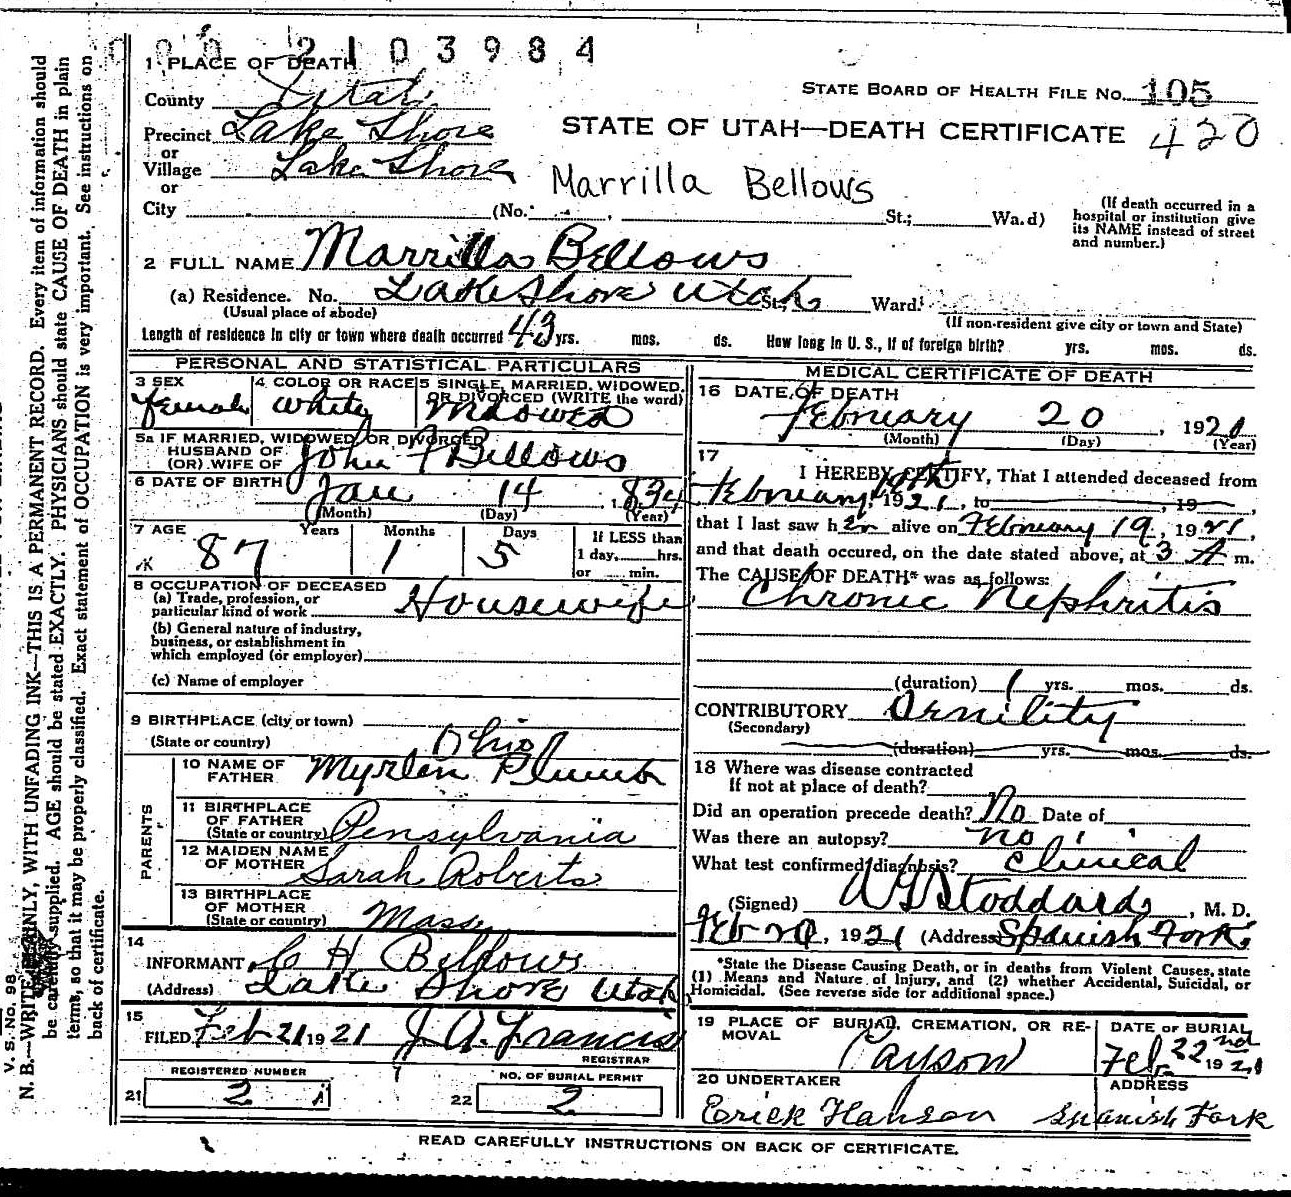 2103984
1 PLACE OF DEATH
County Utah
STATE BOARD OF HEALTH FILE No. 105
Precinct Lake Shore
STATE OF UTAH—DEATH CERTIFICATE
420
or
Village Lake Shore
Marrilla Bellows
or
City (No. , St.; Wa.d)
(If death occurred in a hospital or institution give its NAME instead of street and number.)
2 FULL NAME Marrilla Bellows
(a) Residence. No. Lake Shore Utah St., Ward.
(Usual place of abode)
(If non-resident give city or town and State)
Length of residence in city or town where death occurred 43 yrs. mos. ds. How long in U. S., if of foreign birth? yrs. mos. ds.
PERSONAL AND STATISTICAL PARTICULARS
3 SEX
female
4 COLOR OR RACE
White
5 SINGLE, MARRIED, WIDOWED, OR DIVORCED (WRITE the word)
Widowed
5a IF MARRIED, WIDOWED, OR DIVORCED
HUSBAND OF
(OR) WIFE OF John F Bellows
6 DATE OF BIRTH Jan 14 1834
(Month) (Day) (Year)
7 AGE Years Months Days
87 1 5
If LESS than
1 day, hrs.
or min.
8 OCCUPATION OF DECEASED
(a) Trade, profession, or
particular kind of work Housewife
(b) General nature of industry,
business, or establishment in
which employed (or employer)
(c) Name of employer
9 BIRTHPLACE (city or town)
(State or country) Ohio
PARENTS
10 NAME OF
FATHER Plumb
11 BIRTHPLACE
OF FATHER
(State or country) Pensylvania
12 MAIDEN NAME
OF MOTHER Sarah Roberts
13 BIRTHPLACE
OF MOTHER
(State or country) Mass
14
INFORMANT C H Bellows
(Address) Lake Shore Utah
15
FILED Feb 21 1921 J. A. Francis
REGISTRAR
REGISTERED NUMBER
21 2
NO. OF BURIAL PERMIT
22 2
MEDICAL CERTIFICATE OF DEATH
16 DATE OF DEATH
February 20, 1920
(Month) (Day) (Year)
17
I HEREBY CERTIFY, That I attended deceased from
February 19th, 1921, to , 19 ,
that I last saw her alive on February 19, 1921,
and that death occured, on the date stated above, at 3 A m.
The CAUSE OF DEATH* was as follows:
Chronic Nephritis
(duration) 1 yrs. mos. ds.
CONTRIBUTORY
(Secondary)
(duration) yrs. mos. ds.
18 Where was disease contracted
If not at place of death?
Did an operation precede death? No Date of
Was there an autopsy? no
What test confirmed diagnosis? Clinical
(Signed) Stoddard, M. D.
Feb 20, 1921 (Address) Spanish Fork
*State the Disease Causing Death, or in deaths from Violent Causes, state
(1) Means and Nature of Injury, and (2) whether Accidental, Suicidal, or
Homicidal. (See reverse side for additional space.)
19 PLACE OF BURIAL, CREMATION, OR REMOVAL
Payson
DATE OF BURIAL
Feb. 22nd 1921
20 UNDERTAKER
Erick Hanson
ADDRESS
Spanish Fork
READ CAREFULLY INSTRUCTIONS ON BACK OF CERTIFICATE.
V. S. No. 98
N. B.—WRITE PLAINLY, WITH UNFADING INK—THIS IS A PERMANENT RECORD. Every item of information should
be carefully supplied. AGE should be stated EXACTLY. PHYSICIANS should state CAUSE OF DEATH in plain
terms, so that it may be properly classified. Exact statement of OCCUPATION is very important. See instructions on
back of certificate.